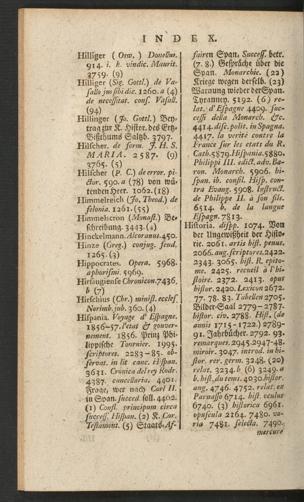 INDEX.
Hilliger (Osw.) Donellus.
914. i. k. vindic. Maurit.
3759. (9)
Hilliger (Sig. Gottl.) de Va-
sallo jus sibi dic. 1260. a (4)
de necessitat. conf. Vasall.
(94)
Hillinger (Jo. Gottl.) Bey-
trag zur K. Histor. des Ertz-
Bißthums Saltzb. 3797.
Hilscher. de form. J. H. S.
MARIA. 2587. (9)
3765. (5)
Hilscher (P. C.) de error. pi-
ctor. 590. a (78) von wü-
tenden Heer. 1062. (18)
Himmelreich (Jo. Theod.) de
felonia. 1261. (55)
Himmelscron (Monast.) Be-
schreibung. 3443. (4)
Hinckelmann. Alcoranus. 450.
Hinze (Greg.) conjug. feud.
1265. (3)
Hippocrates. Opera. 5968.
aphorismi. 5969.
Hirsaugiense Chronicon. 7436.
b (7)
Hirschius (Chr.) minist. eccles.
Norimb. jub. 360. (4)
Hispania. Voyage d'Espagne.
1856-57. l'etat & gouver-
nement. 1856. Printz Phi-
lippische Tournier. 1995.
scriptores. 2283-85. ob-
servat. in lit. cauc. Hispan.
3631. Cronica del rey Rodr.
4387. concellaria. 4401.
Frage, wer nach Carl II.
in Span. succed. soll. 4402.
(1) Consf. principum circa
success. Hispan. (2) K. Car.
Testament. (5) Staats-Af-
fairen Span. Success. betr.
(7. 8.) Gespräche über die
Span. Monarchie. (22)
Kriege wegen derselb. (23)
Warnung wieder der Span.
Tyranney. 5192. (6) re-
lat. d'Espagne 4409. suc-
cessi della Monarch. &c.
4414. disc. polit. in Spagna.
4417. la verité contra la
France sur les etats du R.
Cath. 5879. Hispania. 5880.
Philippi III. edict. adv. Ba-
ron. Monarch. 5906. hi-
span. ib. consil. Hisp. con-
tra Evang. 5908. Instruct.
de Philippe II. à son file.
6514. b. de la langue
Espagn. 7813.
Historia. dissp. 1074. Von
der Ungewißheit der Histo-
rie. 2061. artis hist. penus.
2066. aug. scriptores. 2422-
2343. 3065. hist. R. epito-
me. 2425. recueil à l'hi-
stoire. 2372. 2413. opus
histor. 2420. Lexicon 2672.
77. 78. 83. Tabellen 2705.
Bilder-Saal 2779-2787.
histor. civ. 2788. Hist. (de
annis 1715-1722.) 2789-
91. Jahrbücher. 2792. 93.
remarques. 2945. 2947-48.
miroir. 3047. introd. in hi-
stor. rer. germ. 3248. (22)
relat. 3234. b (6) 3249. a
b. hist. du tems. 4030. histor.
aug. 4746. 4752. relat. ex
Parnasso 6714. hist. occulta
6740. (3) historica 6961.
opuscula 2164. 7480. va-
ria 7481. selecta. 7490.
mercure